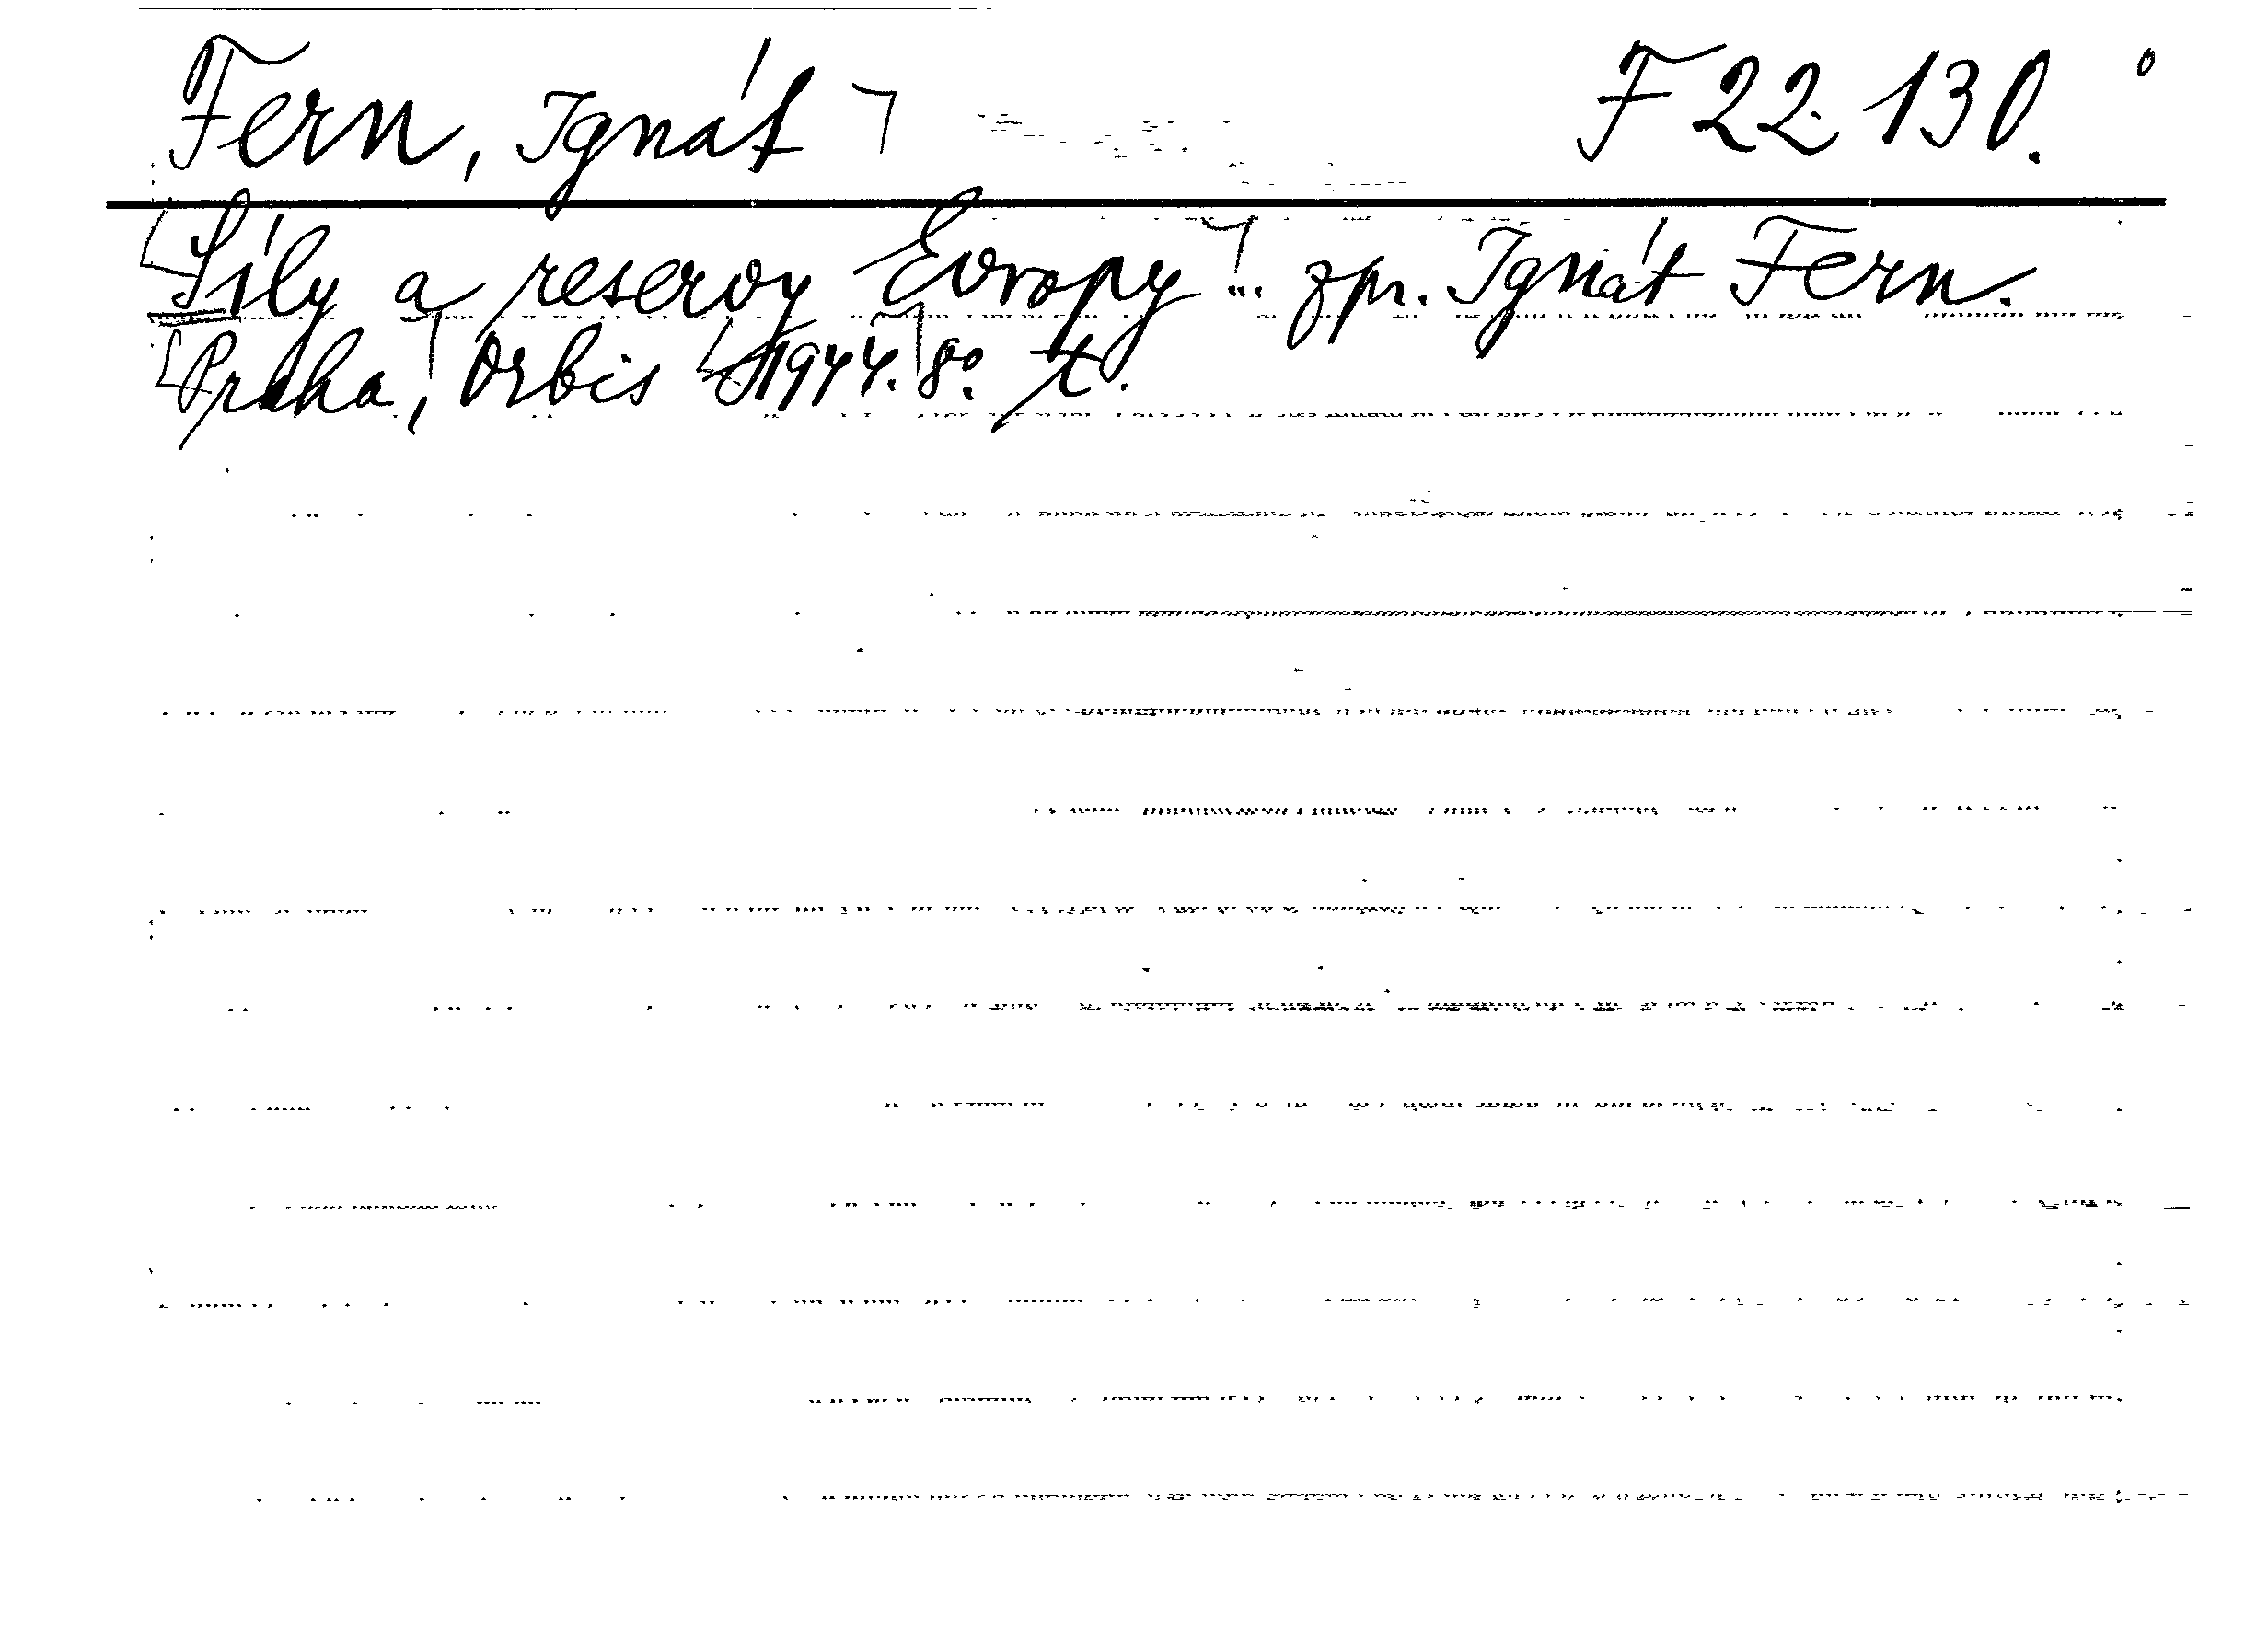 Fern, Ignát F 22.130.
Síly a reservy Evropy ... zpr. Ignát Fern.
Praha, Orbis 1944. 8°. t.